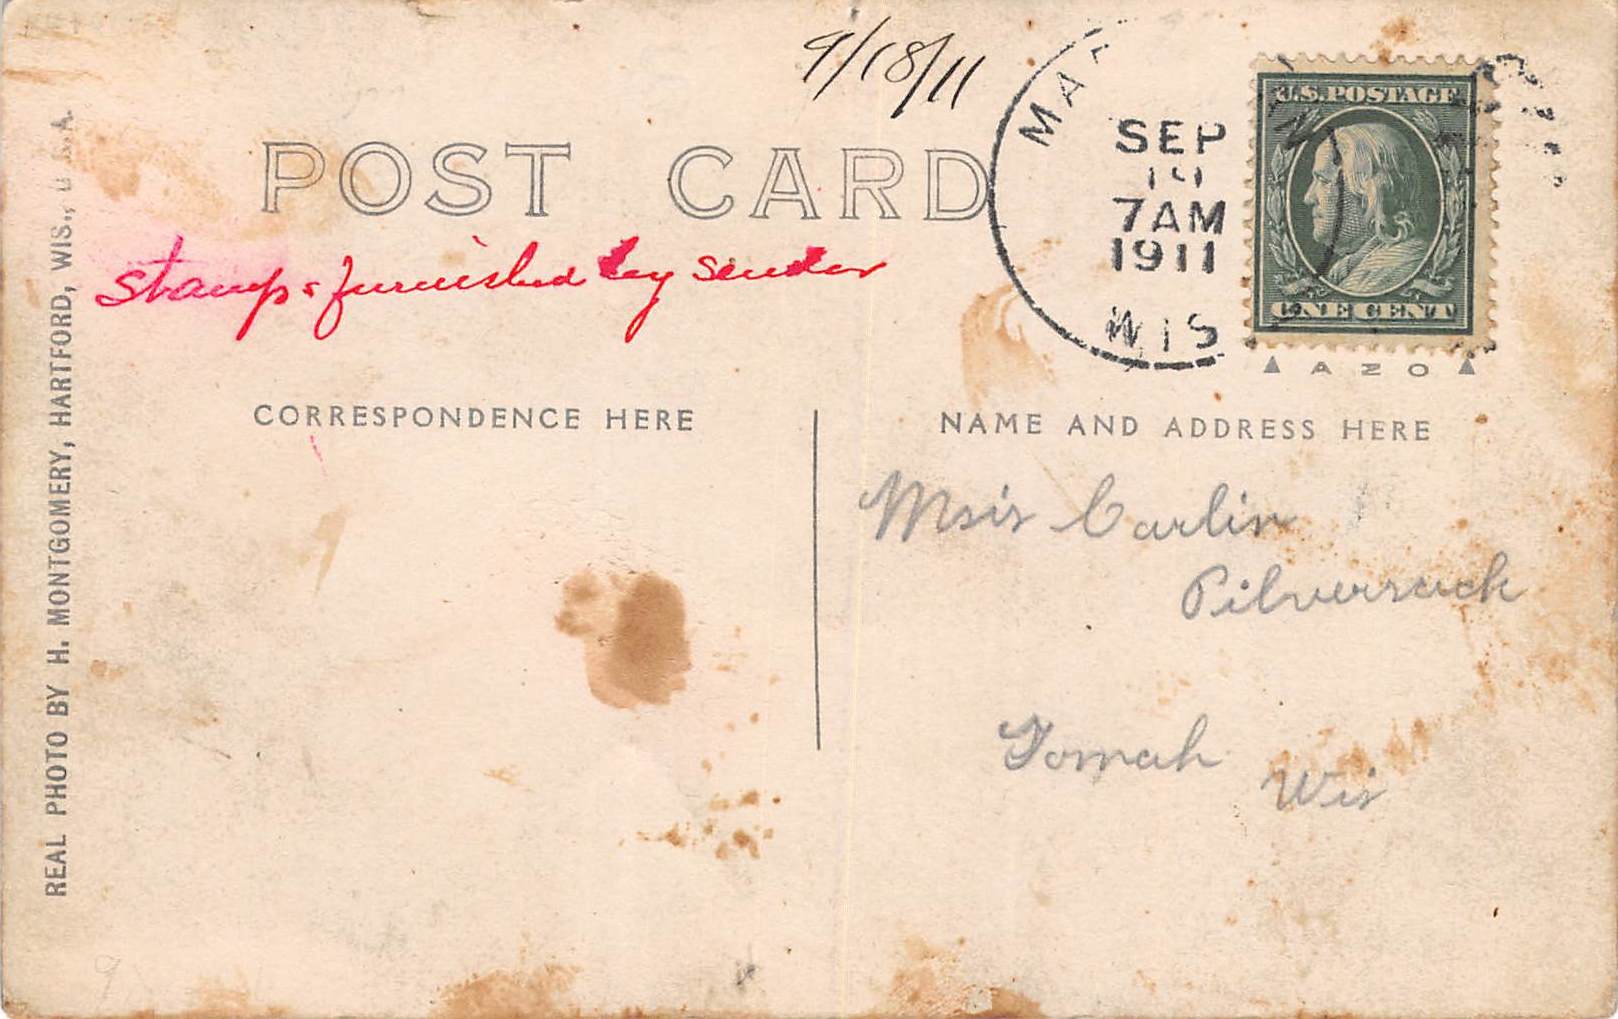 9/18/11
POST CARD
SEP
7AM
1911
WIS
U.S.POSTAGE
ONE CENT
AZO
stamp furnished by sender
CORRESPONDENCE HERE
NAME AND ADDRESS HERE
Carlin
Tomah
Wis
REAL PHOTO BY H. MONTGOMERY, HARTFORD, WIS., U.S.A.
9